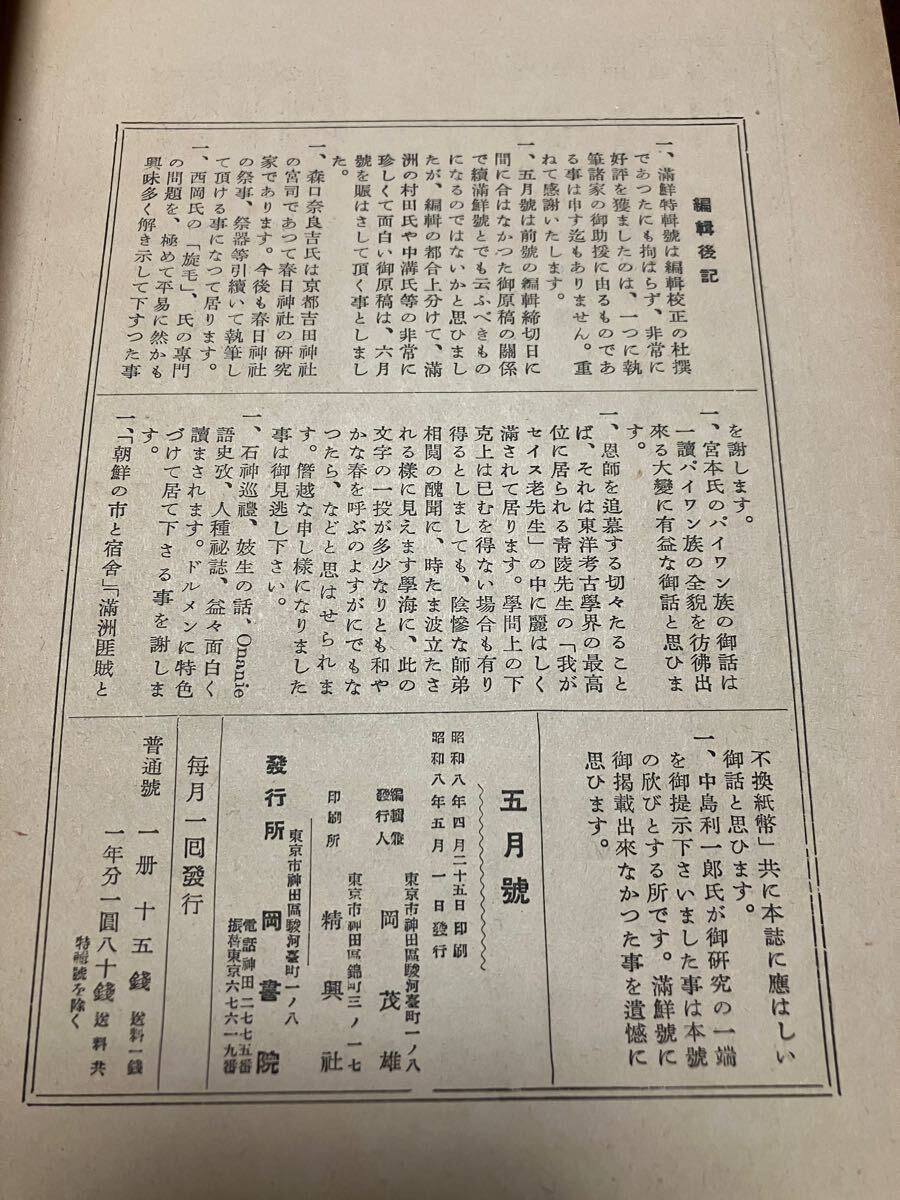 編輯後記
一、滿鮮特輯號は編輯校正の杜撰
であつたにも拘はらず、非常に
好評を獲ましたのは、一つに執
筆諸家の御助援に由るものであ
る事は申す迄もありません。重
ねて感謝いたします。
一、五月號は前號の編輯締切日に
間に合はなかつた御原稿の關係
で續滿鮮號とでも云ふべきもの
になるのではないかと思ひまし
たが、編輯の都合上分けて、滿
洲の村田氏や中溝氏等の非常に
珍しくて面白い御原稿は、六月
號を賑はさして頂く事としまし
た。
一、森口奈良吉氏は京都吉田神社
の宮司であつて春日神社の硏究
家であります。今後も春日神社
の祭事、祭器等引續いて執筆し
て頂ける事になつて居ります。
一、西岡氏の「旋毛」、氏の專門
の問題を、極めて平易に然かも
興味多く解き示して下すつた事
を謝します。
一、宮本氏のパイワン族の御話は
一讀パイワン族の全貌を彷彿出
來る大變に有益な御話と思ひま
す。
一、恩師を追慕する切々たること
ば、それは東洋考古學界の最高
位に居られる靑陵先生の「我が
セイス老先生」の中に麗はしく
滿されて居ります。學問上の下
克上は已むを得ない場合も有り
得るとしましても、陰慘な師弟
相鬩の醜聞に、時たま波立たさ
れる樣に見えます學海に、此の
文字の一投が多少なりとも和や
かな春を呼ぶのよすがにでもな
つたら、などと思はせられま
す。僭越な申し樣になりました
事は御見逃し下さい。
一、石神巡禮、妓生の話、Onanie
語史攷、人種祕誌、益々面白く
讀まされます。ドルメンに特色
づけて居て下さる事を謝しま
す。
一、「朝鮮の市と宿舍」「滿洲匪賊と
不換紙幣」共に本誌に應はしい
御話と思ひます。
一、中島利一郎氏が御硏究の一端
を御提示下さいました事は本號
の欣びとする所です。滿鮮號に
御揭載出來なかつた事を遺憾に
思ひます。
五月號
昭和八年四月二十五日印刷
昭和八年五月一日發行
東京市神田區駿河臺町一ノ八
編輯兼發行人 岡茂雄
東京市神田區錦町三ノ一七
印刷所 精興社
東京市神田區駿河臺町一ノ八
發行所 岡書院
電話神田二七七五番
振替東京六七六一九番
每月一回發行
普通號 一册十五錢 送料一錢
一年分一圓八十錢 送料共
特輯號を除く